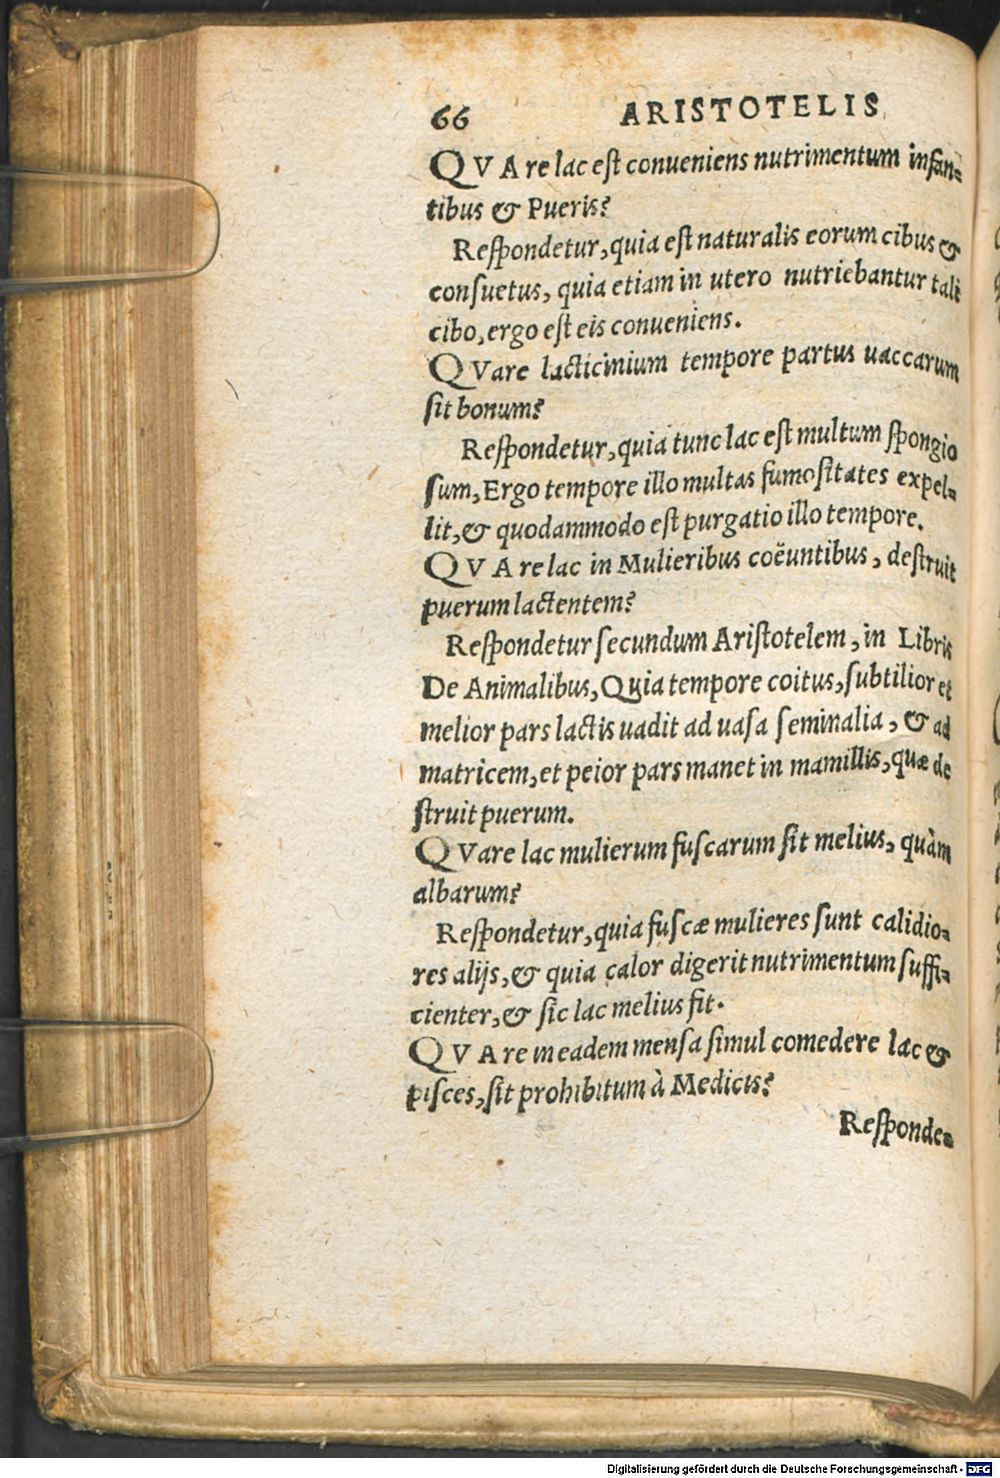 66 ARISTOTELIS
QVAre lac eſt conueniens nutrimentum infan-
tibus & Pueris?
Reſpondetur, quia eſt naturalis eorum cibus &
conſuetus, quia etiam in utero nutriebantur tali
cibo, ergo eſt eis conueniens.
QVare lacticinium tempore partus uaccarum
ſit bonum?
Reſpondetur, quia tunc lac eſt multum ſpongio
ſum, Ergo tempore illo multas fumoſitates expel-
lit, & quodammodo eſt purgatio illo tempore.
QVAre lac in Mulieribus coëuntibus, deſtruit
puerum lactentem?
Reſpondetur ſecundum Ariſtotelem, in Libris
De Animalibus, Quia tempore coitus, ſubtilior et
melior pars lactis uadit ad uaſa ſeminalia, & ad
matricem, et peior pars manet in mamillis, quæ de
ſtruit puerum.
QVare lac mulierum fuſcarum ſit melius, quàm
albarum?
Reſpondetur, quia fuſcæ mulieres ſunt calidio-
res alijs, & quia calor digerit nutrimentum ſuffi-
cienter, & ſic lac melius fit.
QVAre in eadem menſa ſimul comedere lac &
piſces, ſit prohibitum à Medicis?
Reſponde-
Digitalisierung gefördert durch die Deutsche Forschungsgemeinschaft - DFG